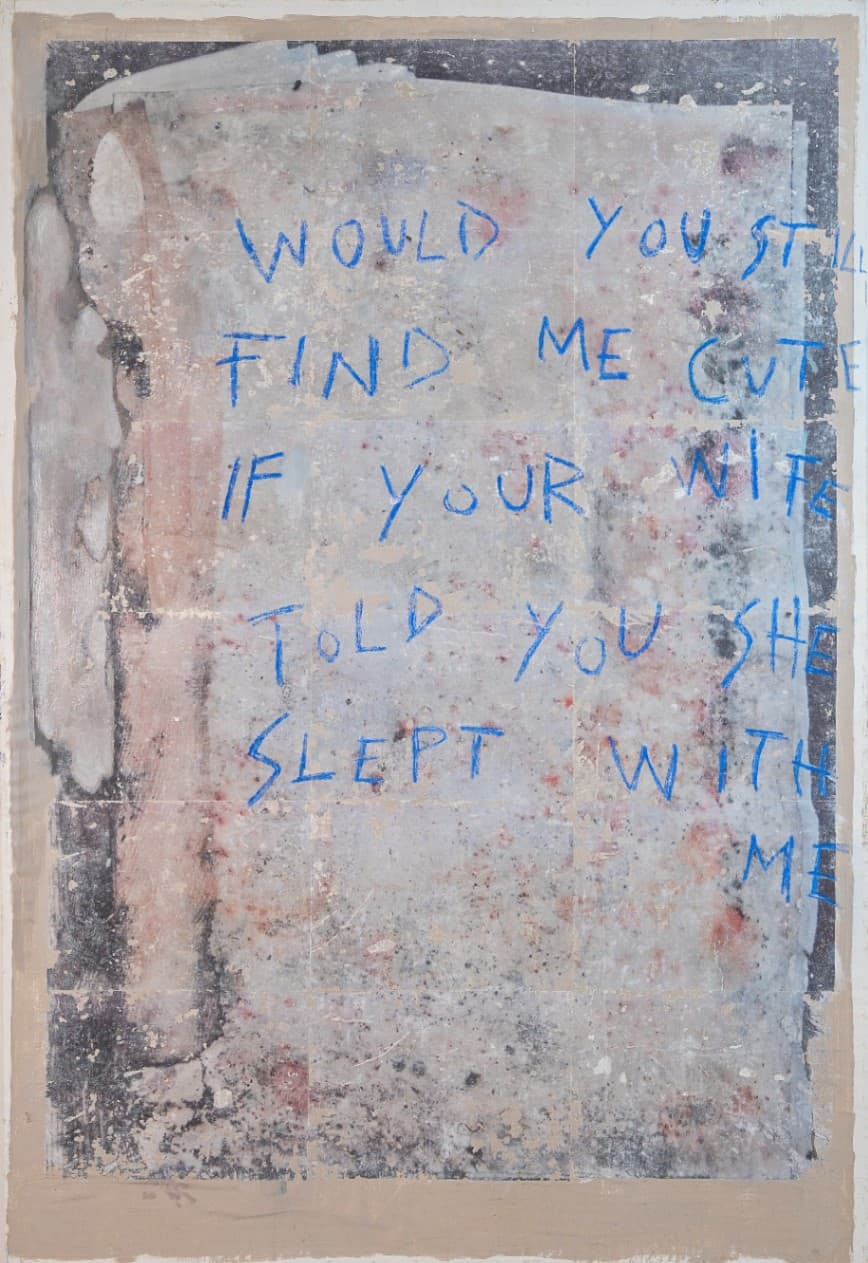 WOULD YOU STILL
FIND ME CUTE
IF YOUR WIFE
TOLD YOU SHE
SLEPT WITH
ME